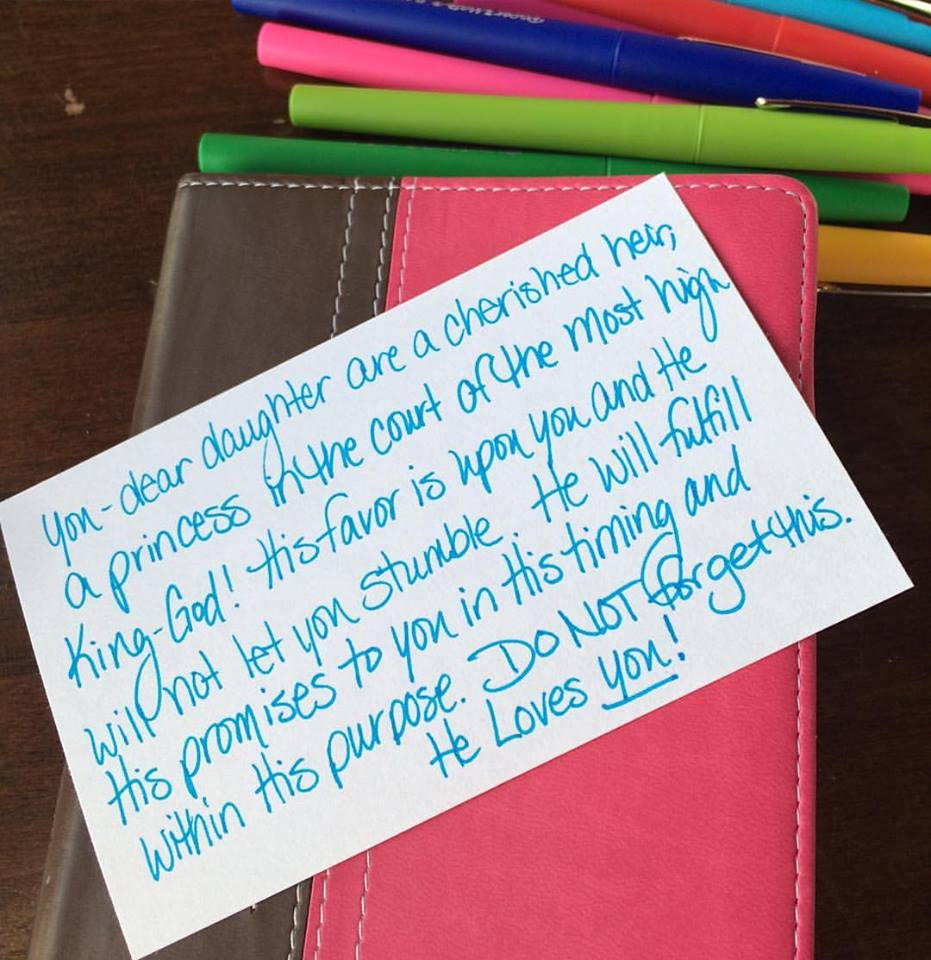 You-dear daughter are a cherished heir,
a princess in the court of the most high
King-God! His favor is upon you and He
will not let you stumble. He will fulfill
His promises to you in His timing and
within His purpose. DO NOT forget this.
He Loves you!